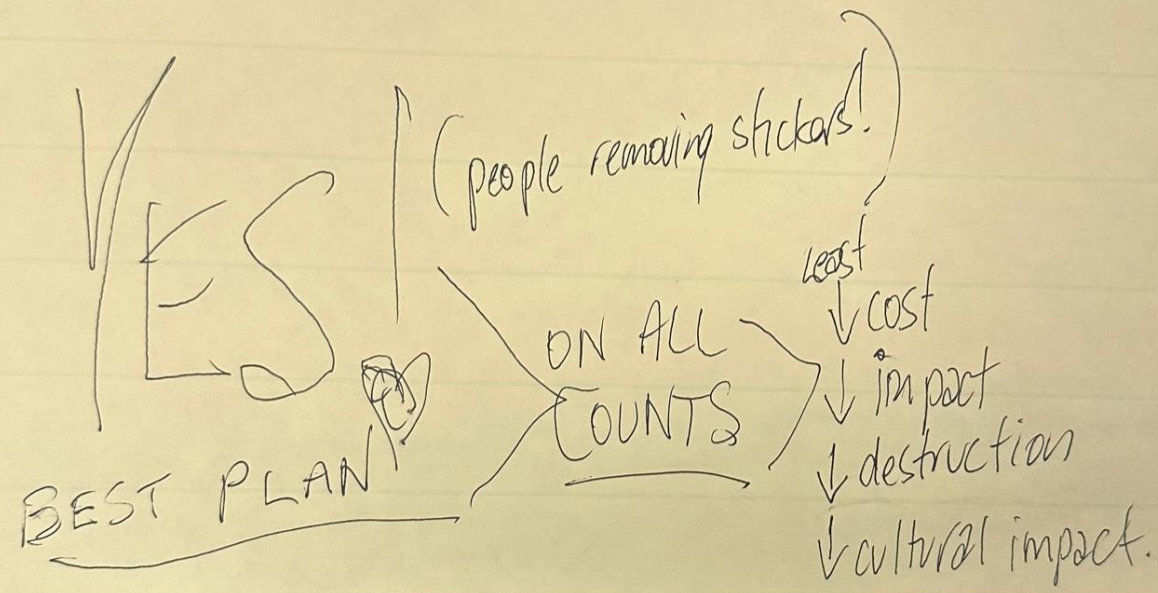 YES!
(people removing stickers!)
BEST PLAN!
ON ALL
COUNTS
Least
↓ cost
↓ impact
↓ destruction
↓ cultural impact.